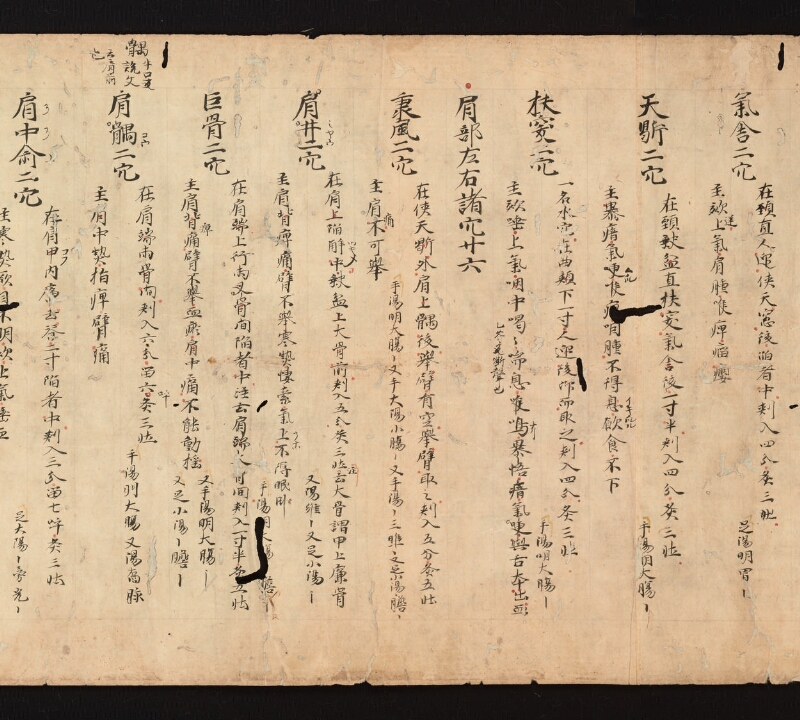 氣舍二穴
在頸直人迎俠天窓後陷者中刾入四分灸三壯
足陽明胃
主欬上氣肩腫喉痺瘤癭
天䶍二穴
在頸缺盆直扶突氣舍後一寸半刾入四分灸三壯
手陽明大腸
主暴瘖氣哽喉痺咽腫不得息飲食不下
扶突二穴
一名水穴在曲頰下一寸人迎後仰而取之刾入四分灸三壯
手陽明大腸
主欬唾上氣咽中喝喝喘息喉鳴暴忤瘖氣哽與舌本出血
肩部左右諸穴廿六
秉風二穴
在俠天䶍外肩上髃後舉臂有空舉臂取之刾入五分灸五壯
手陽明大腸又手太陽小腸又手陽三瞧又足小陽膽
主肩痛不可舉
肩井二穴
在肩上陷解中缺盆上大骨前刾入五分灸三壯去大骨謂甲上廉骨
又陽維又足小陽
主肩背痺痛臂不舉寒熱悽索氣上不得眠臥
手陽明大腸
巨骨二穴
在肩端上行兩叉骨間陷者中注云肩端刾入一寸半灸五壯
又手陽明大腸
又足小陽膽
主肩背痛臂不舉血瘀肩中痛不能動搖
肩髃二穴
在肩端兩骨間刾入六分留六呼灸三壯
手陽明大腸又陽喬脉
主肩中熱指痺臂痛
肩中俞二穴
在肩甲内廉去脊二寸陷者中刾入三分留七呼灸三壯
足大陽旁光
主寒熱厥目不明欬上氣唾血